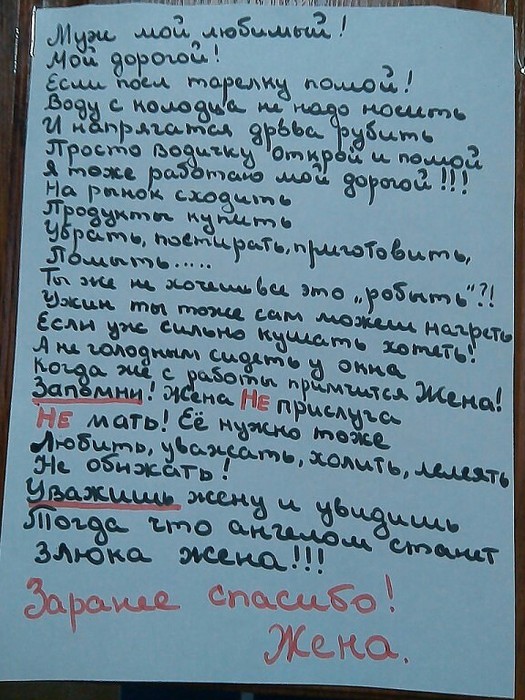 Муж мой любимый!
Мой дорогой!
Если поел тарелку помой!
Воду с колодца не надо носить
И напрягатся дръва рубить
Просто водичку открой и помой
Я тоже работаю мой дорогой!!!
На рынок сходить
Продукты купить
Убрать, постирать, приготовить,
Помыть.....
Ты же не хочеш все это „робыть"?!
Ужин ты тоже сам можеш нагреть
Если уж сильно кушать хотеть!
А не голодным сидеть у окна
Когда же с работы примчится Жена!
Запомни! Жена НЕ прислуга
НЕ мать! Её нужно тоже
Любить, уважать, холить, лелеять
Не обижать!
Уважишь жену и увидишь
Тогда что ангелом станет
Злюка жена!!!
Заранее спасибо!
Жена.